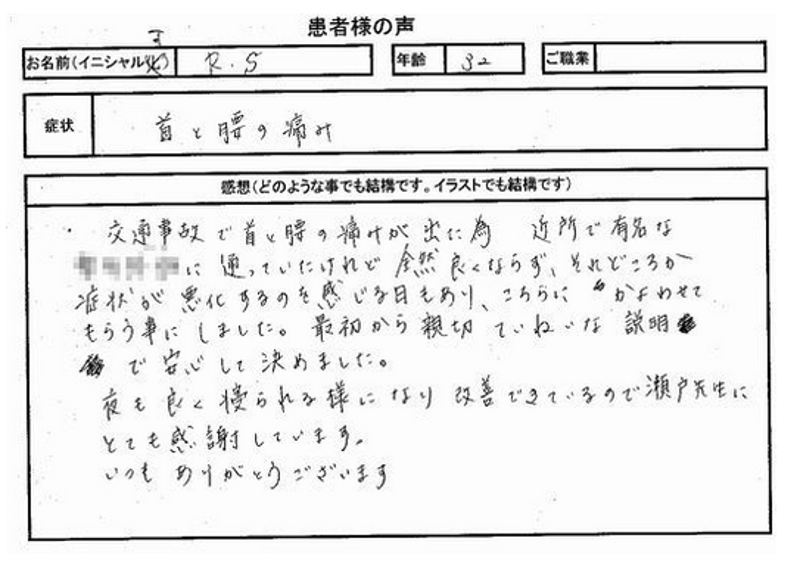 患者様の声
お名前(イニシャル可) R.S 年齢 32 ご職業
症状 首と腰の痛み
感想(どのような事でも結構です。イラストでも結構です)
・交通事故で首と腰の痛みが出た為 近所で有名な
に通っていたけれど全然良くならず、それどころか
症状が悪化するのを感じる日もあり、こちらに かよわせて
もらう事にしました。最初から親切ていねいな説明
で安心して決めました。
夜も良く寝られる様になり改善できているので瀬戸先生に
とても感謝しています。
いつもありがとうございます